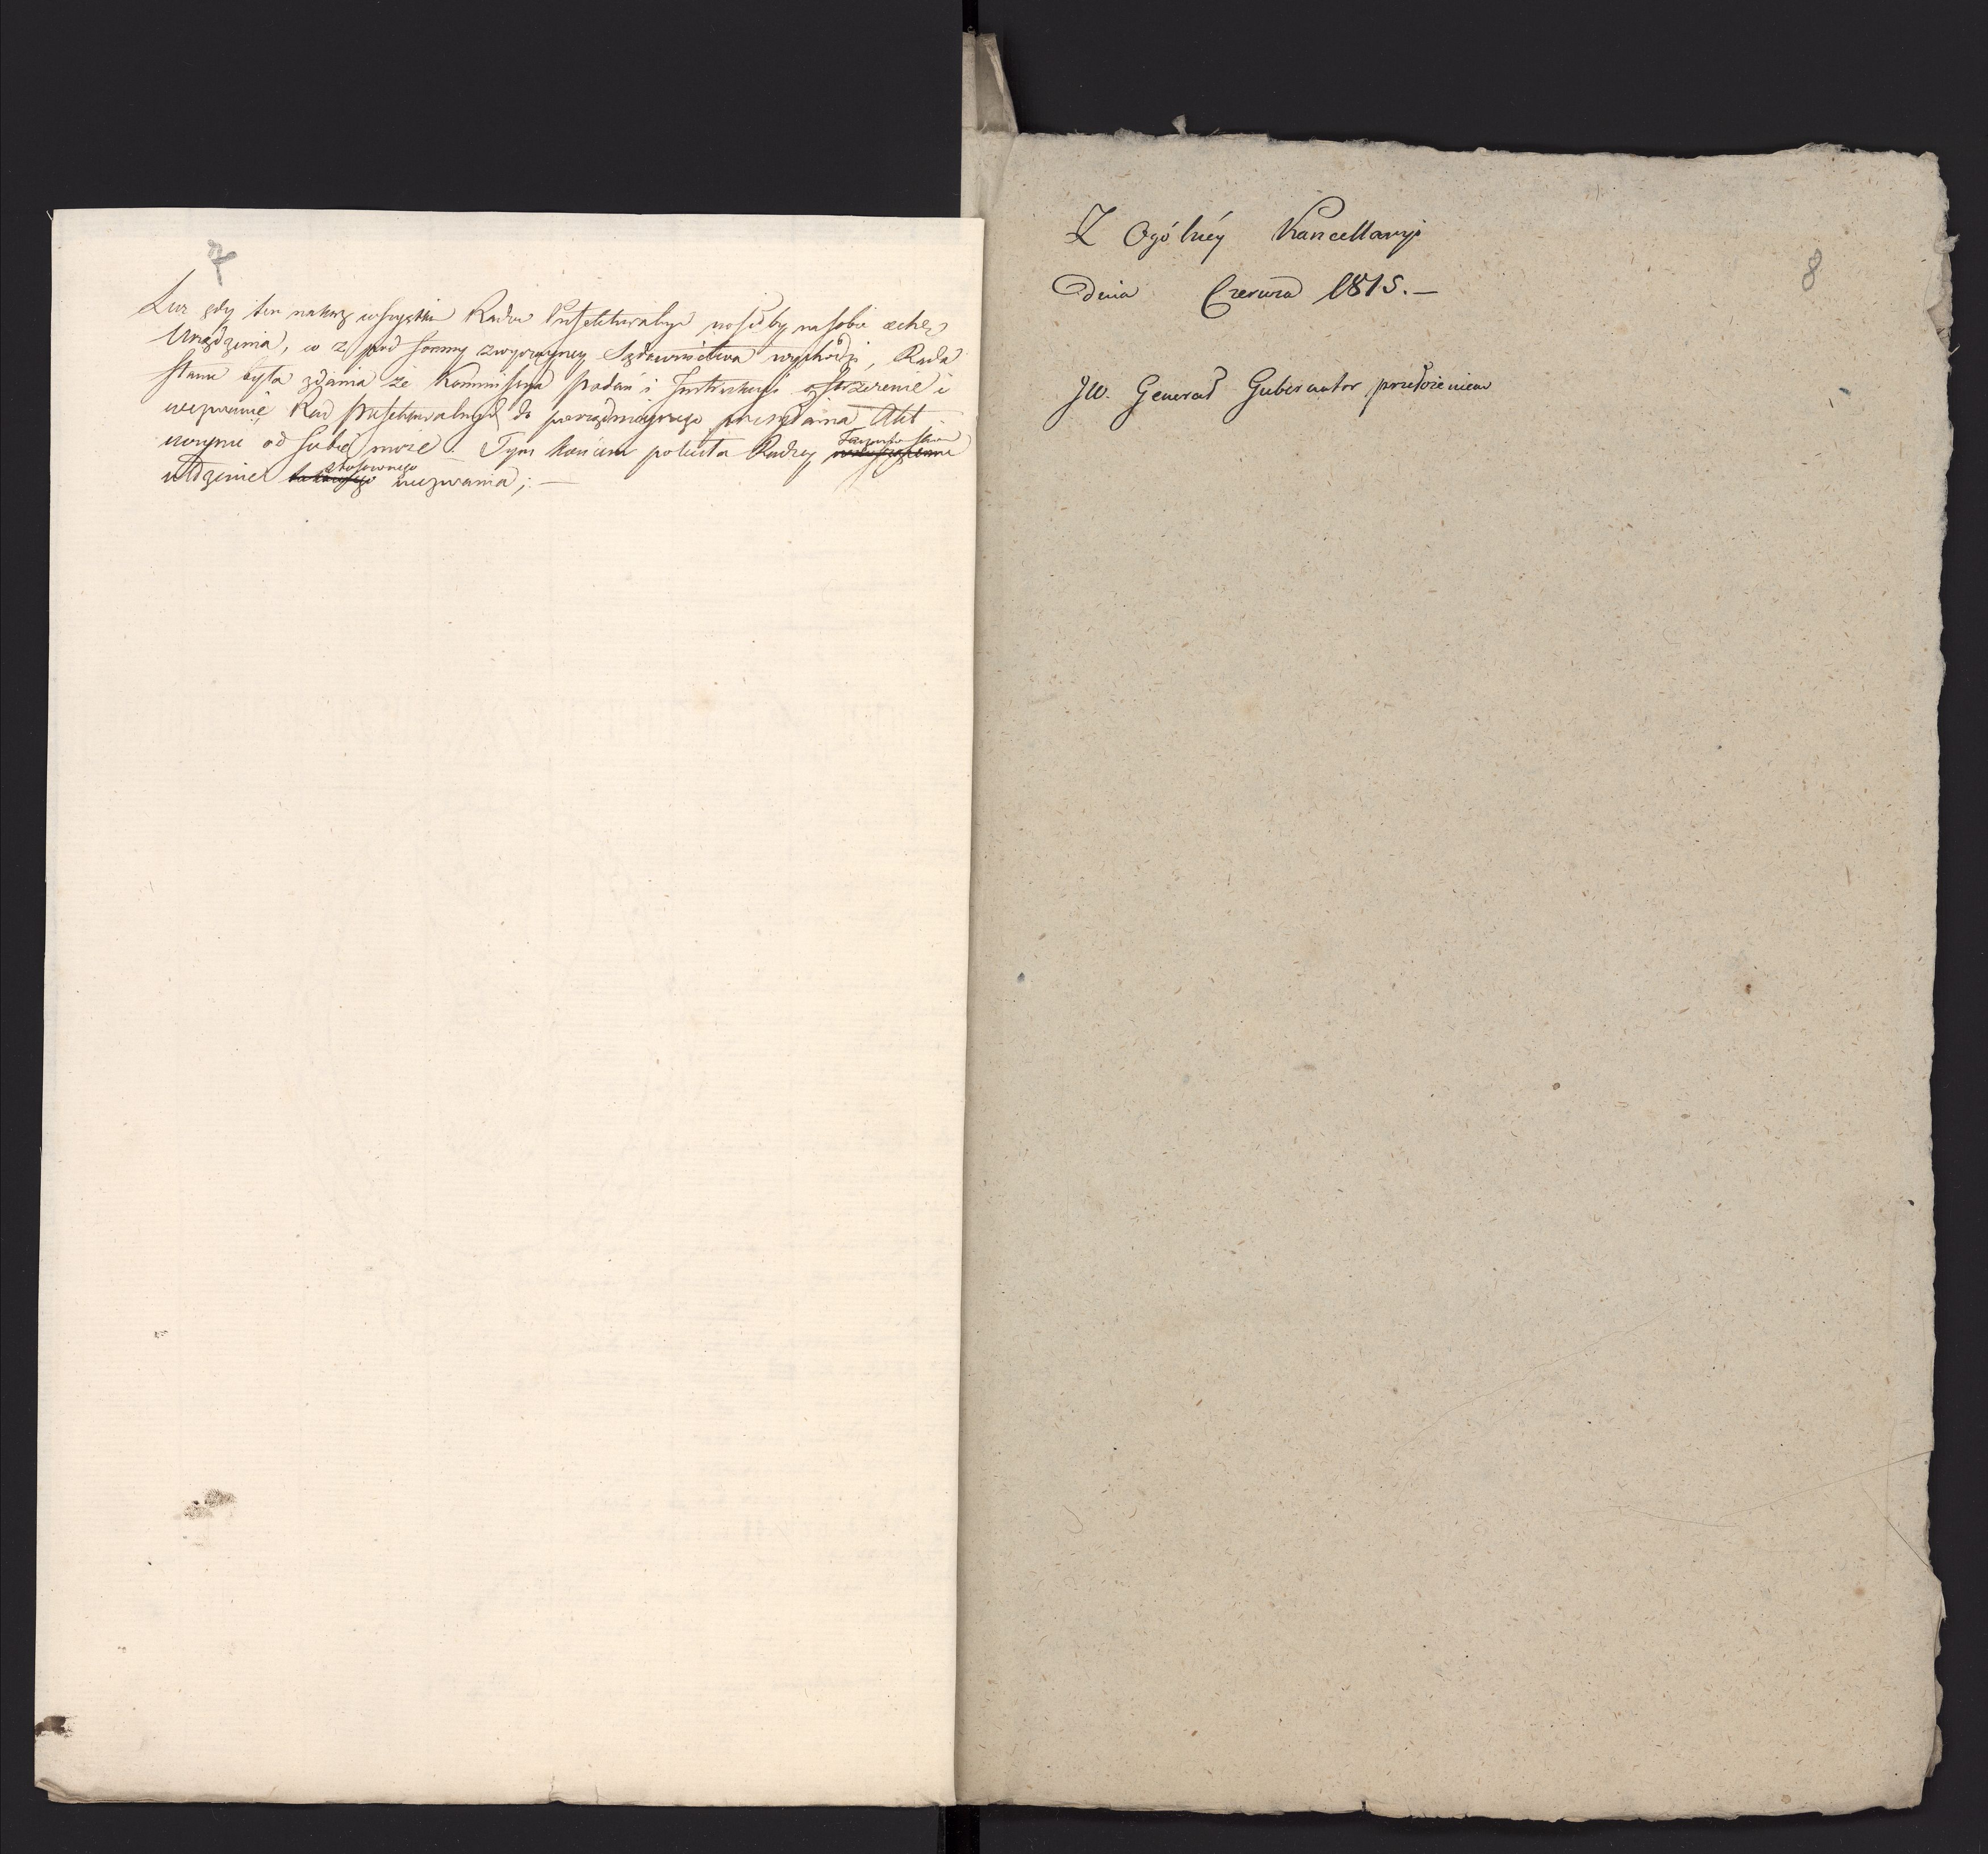 7
Lecz gdy ten nakaz wszystkie Rada Prefekturalnya nosiłby na sobie cechę
Urządzenia, co z pod formy zwyczayney Sądownictwa wychodzi, Rada
Stanu była zdania że Kommissya Podań i Instrukcyi ostrzeżenie i
wezwanie Rad Prefekturalnych do porządnieyszego przesyłania Akt
uczynić od siebie może. Tym końcem poleciła Radzcy
udzielić stosownego wezwania; —
8
Z Ogólnéy Kancellaryi
dnia Czerwca 1815. —
JW. Generał Gubernator przełożeniem